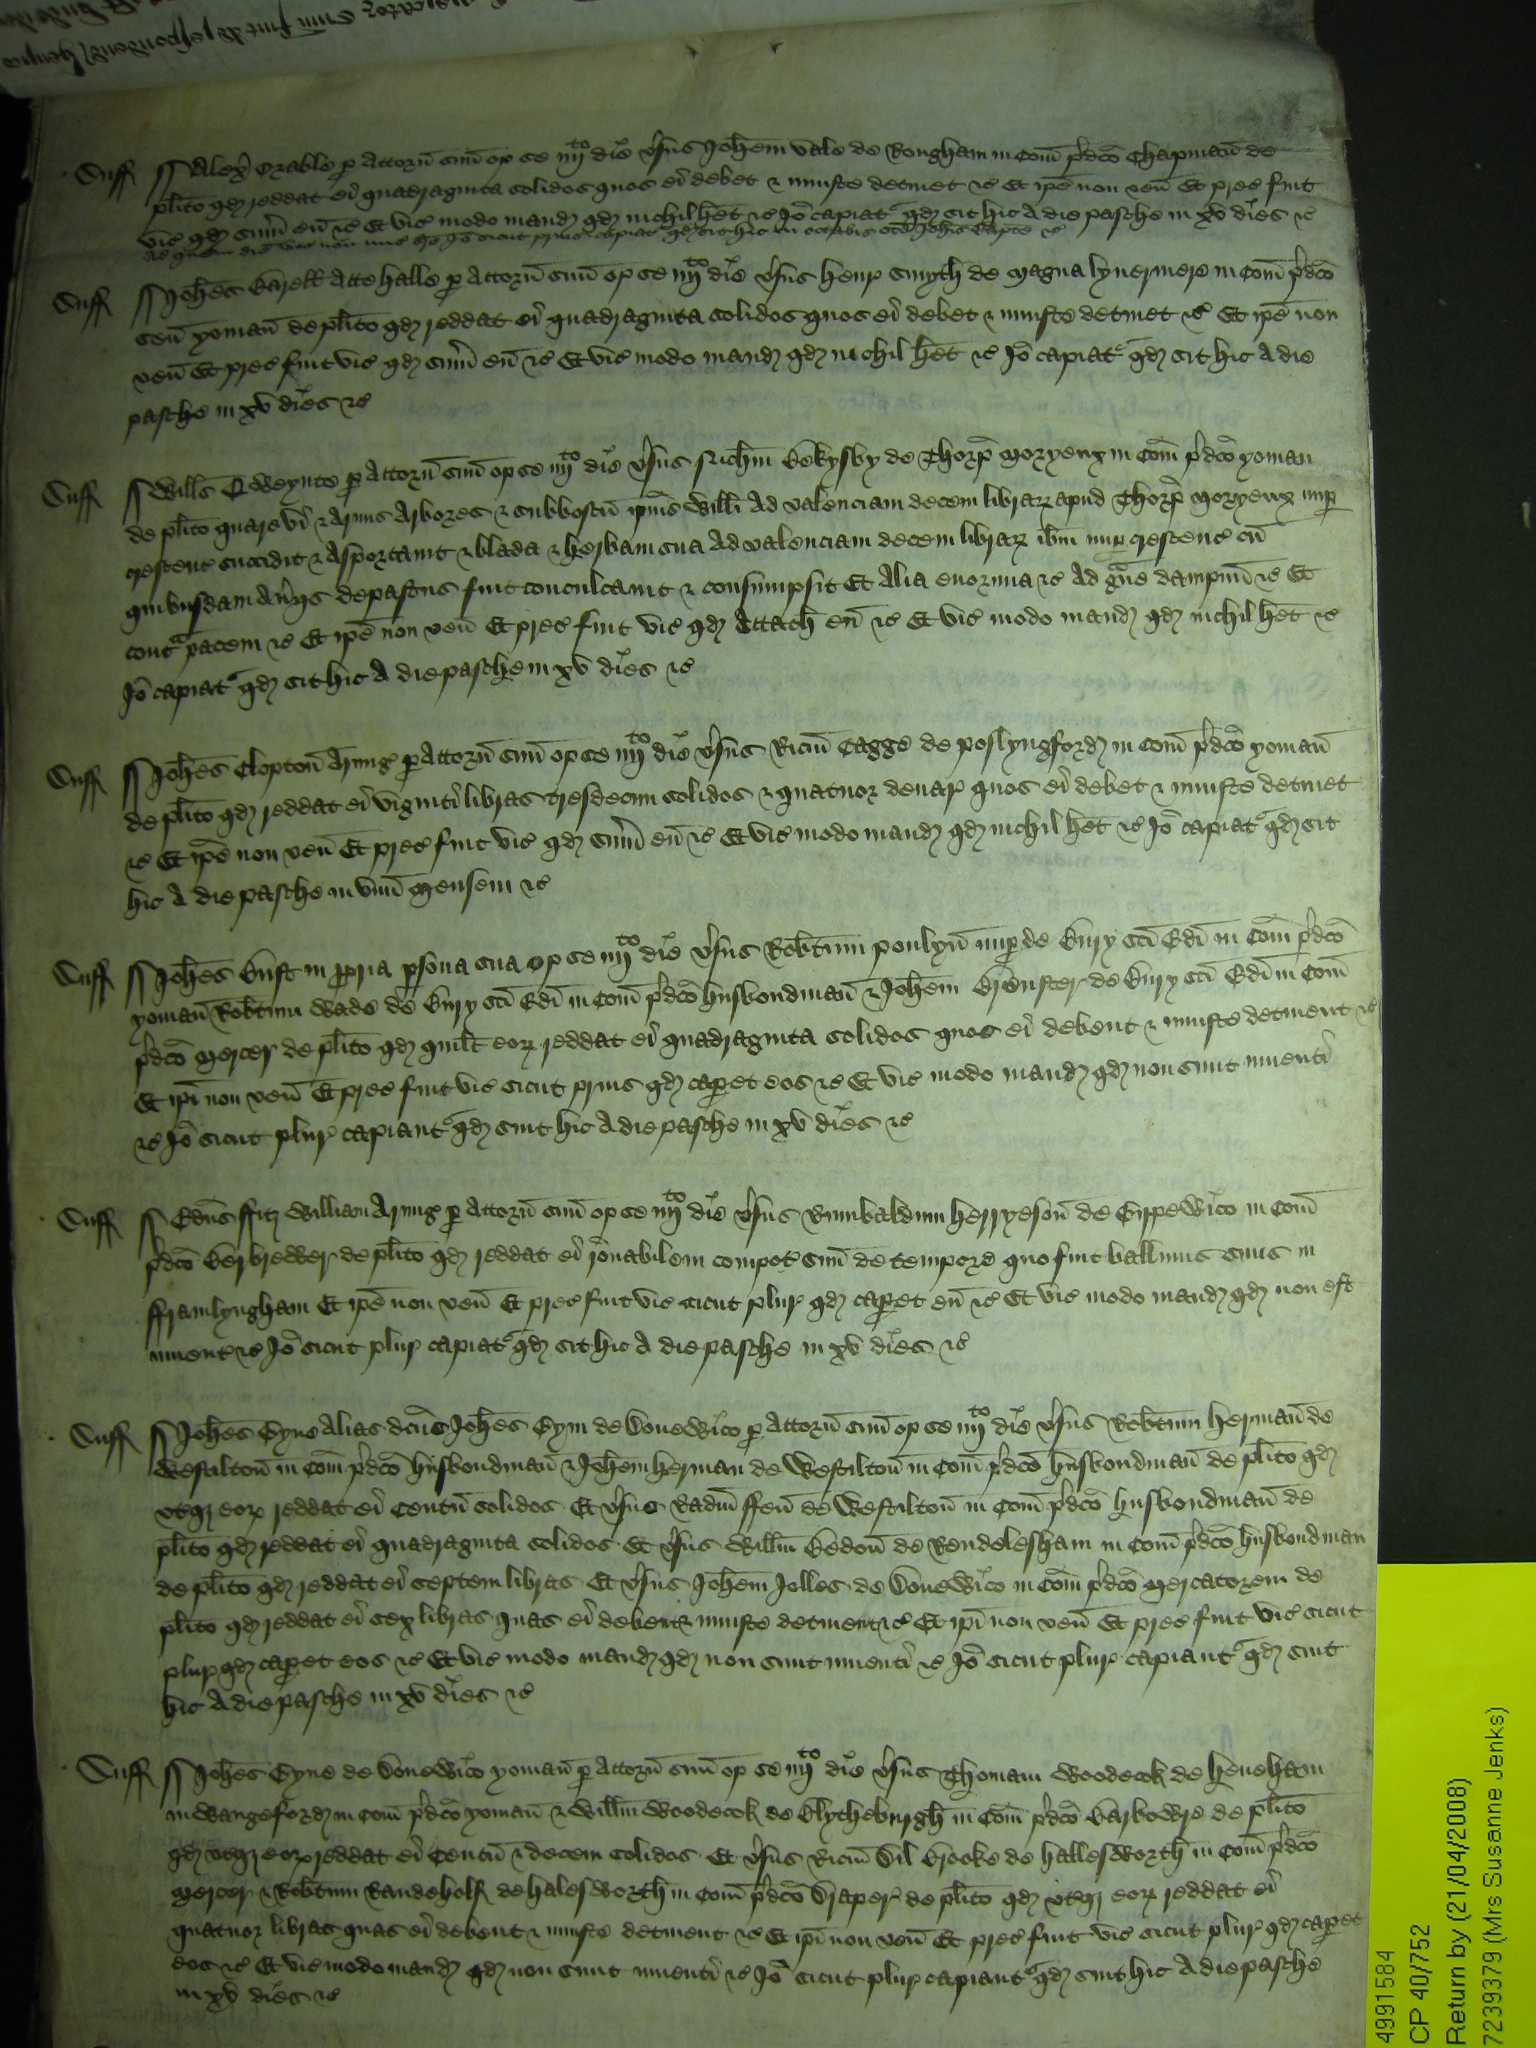 Suff ss Alexr Crable p attorn suu op se iiijto die vsus Johem vale de Rougham in Com pdco Chapman de
plito qd reddat ei quadraginta solidos quos ei debet & iniuste detinet &c Et ipe non ven Et prec fuit
vic qd sum eu &c Et vic modo mand qd nichil het &c Io capiat qd sit hic A die pasche in xv dies &c
Suff ss Johes Barell Atte halle p Attorn suu op se iiijto die vsus henr Smyth de Magna lyuermere in Com pdco
yoman de plito qd reddat ei quadraginta solidos quos ei debet & iniuste detinet &c Et ipe non
ven Et prec fuit vic qd sum eu &c Et vic modo mand qd nichil het &c Io capiat qd sit hic A die
pasche in xv dies &c
Suff ss Wills Qweynto p Attorn suu op se iiijto die vsus Richm Bekysby de Thorp Moryeux in Com pdco yoman
de plito quare vi & Armis Arbores & subboscu ipius Willi Ad valenciam decem librar apud Thorp Moryeux nup
crescent succidit & Asportauit & blada & herbam sua Ad valenciam decem librar ibm nup crescenc cu
quibusdam Aueriis depastus fuit conculcauit & consumpsit Et Alia enormia &c Ad graue dampnu &c Et
contra pacem &c Et ipe non ven Et prec fuit vic qd Attach eu &c Et vic modo mand qd nichil het &c
Io capiat qd sit hic A die pasche in xv dies &c
Suff ss Johes Clopton Armig p Attorn suu op se iiijto die vsus Ricm Cagge de poslyngford in Com pdco yoman
de plito qd reddat ei viginti libras tresdecim solidos & quatuor denar quos ei debet & iniuste detinet
&c Et ipe non ven Et prec fuit vic qd sum eu &c Et vic modo mand qd nichil het &c Io capiat qd sit
hic A die pasche in vnu Mensem &c
Suff ss Johes in ppria psona sua op se iiijto die vsus Robtum poulyn nup de Bury sci Edi in Com pdco
yoman Robtum Wade de Bury sci Edi in Com pdco husbondman & Johem Brewster de Bury sci Edi in Com
pdco Mercer de plito qd quilt eor reddat ei quadraginta solidos quos ei debent & iniuste detinent &c
Et ipi non ven Et prec fuit vic sicut prius qd capet eos &c Et vic modo mand qd non sunt inuenti
&c Io sicut plur capiant qd sint hic A die pasche in xv dies &c
Suff ss Edus ffitz William Armig p Attorn suu op se iiijto die vsus Rumbaldum herryeson de Gippewico in Com
pdco Berbrewer de plito qd reddat ei ronabilem compot suu de tempore quo fuit balliuus suus in
fframlyngham Et ipe non ven Et prec fuit vic sicut plur qd capet eu &c Et vic modo mand qd non est
inuent &c Io sicut plur capiat qd sit hic A die pasche in xv dies &c
Suff ss Johes Gyne Alias dcus Johes Gym de Donewico p Attorn suu op se iiijto die vsus Robtum herman de
Westilton in Com pdco husbondman & Johem herman de Westilton in Com pdco husbondman de plito qd
vterq eor reddat ei Centu solidos Et vsus Radm ffen de Westilton in Com pdco husbondman de
plito qd reddat ei quadraginta solidos Et vsus Willm Bedon de Rendelesham in Com pdco husbondman
de plito qd reddat ei septem libras Et vsus Johem Jolles de Donewico in Com pdco Mercatorem de
plito qd reddat ei sex libras quas ei debent & iniuste detinent &c Et ipi non ven Et prec fuit vic sicut
plur qd capet eos &c Et vic modo mand qd non sunt inuenti &c Io sicut plur capiant qd sint
hic A die pasche in xv dies &c
Suff ss Johes Gyne de Donewico yoman p Attorn suu op se iiijto die vsus Thomam Woodecok de heneham
in Wangeford in Com pdco yoman & Willm Woodecok de Blytheburgh in Com pdco Barbowre de plito
qd vterq eor reddat ei Centu & decem solidos Et vsus Ricm Brooke de hallesworth in Com pdco
Mercer & Robtum Randeholf de halesworth in Com pdco Draper de plito qd vterq eor reddat ei
quatuor libras quas ei debent & iniuste detinent &c Et ipi non ven Et prec fuit vic sicut plur qd capet
eos &c Et vic modo mand qd non sunt inuenti &c Io sicut plur capiant qd sint hic A die pasche
in xv dies &c
4991584
CP 40/752
Return by (21/04/2008)
7239379 (Mrs Susanne Jenks)